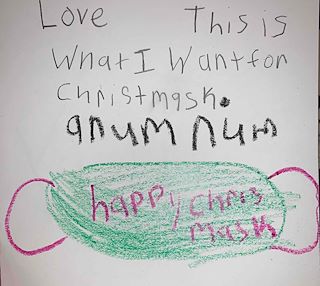 Love This is
What I Want for
Christmask.
anum num
happy chris
mask